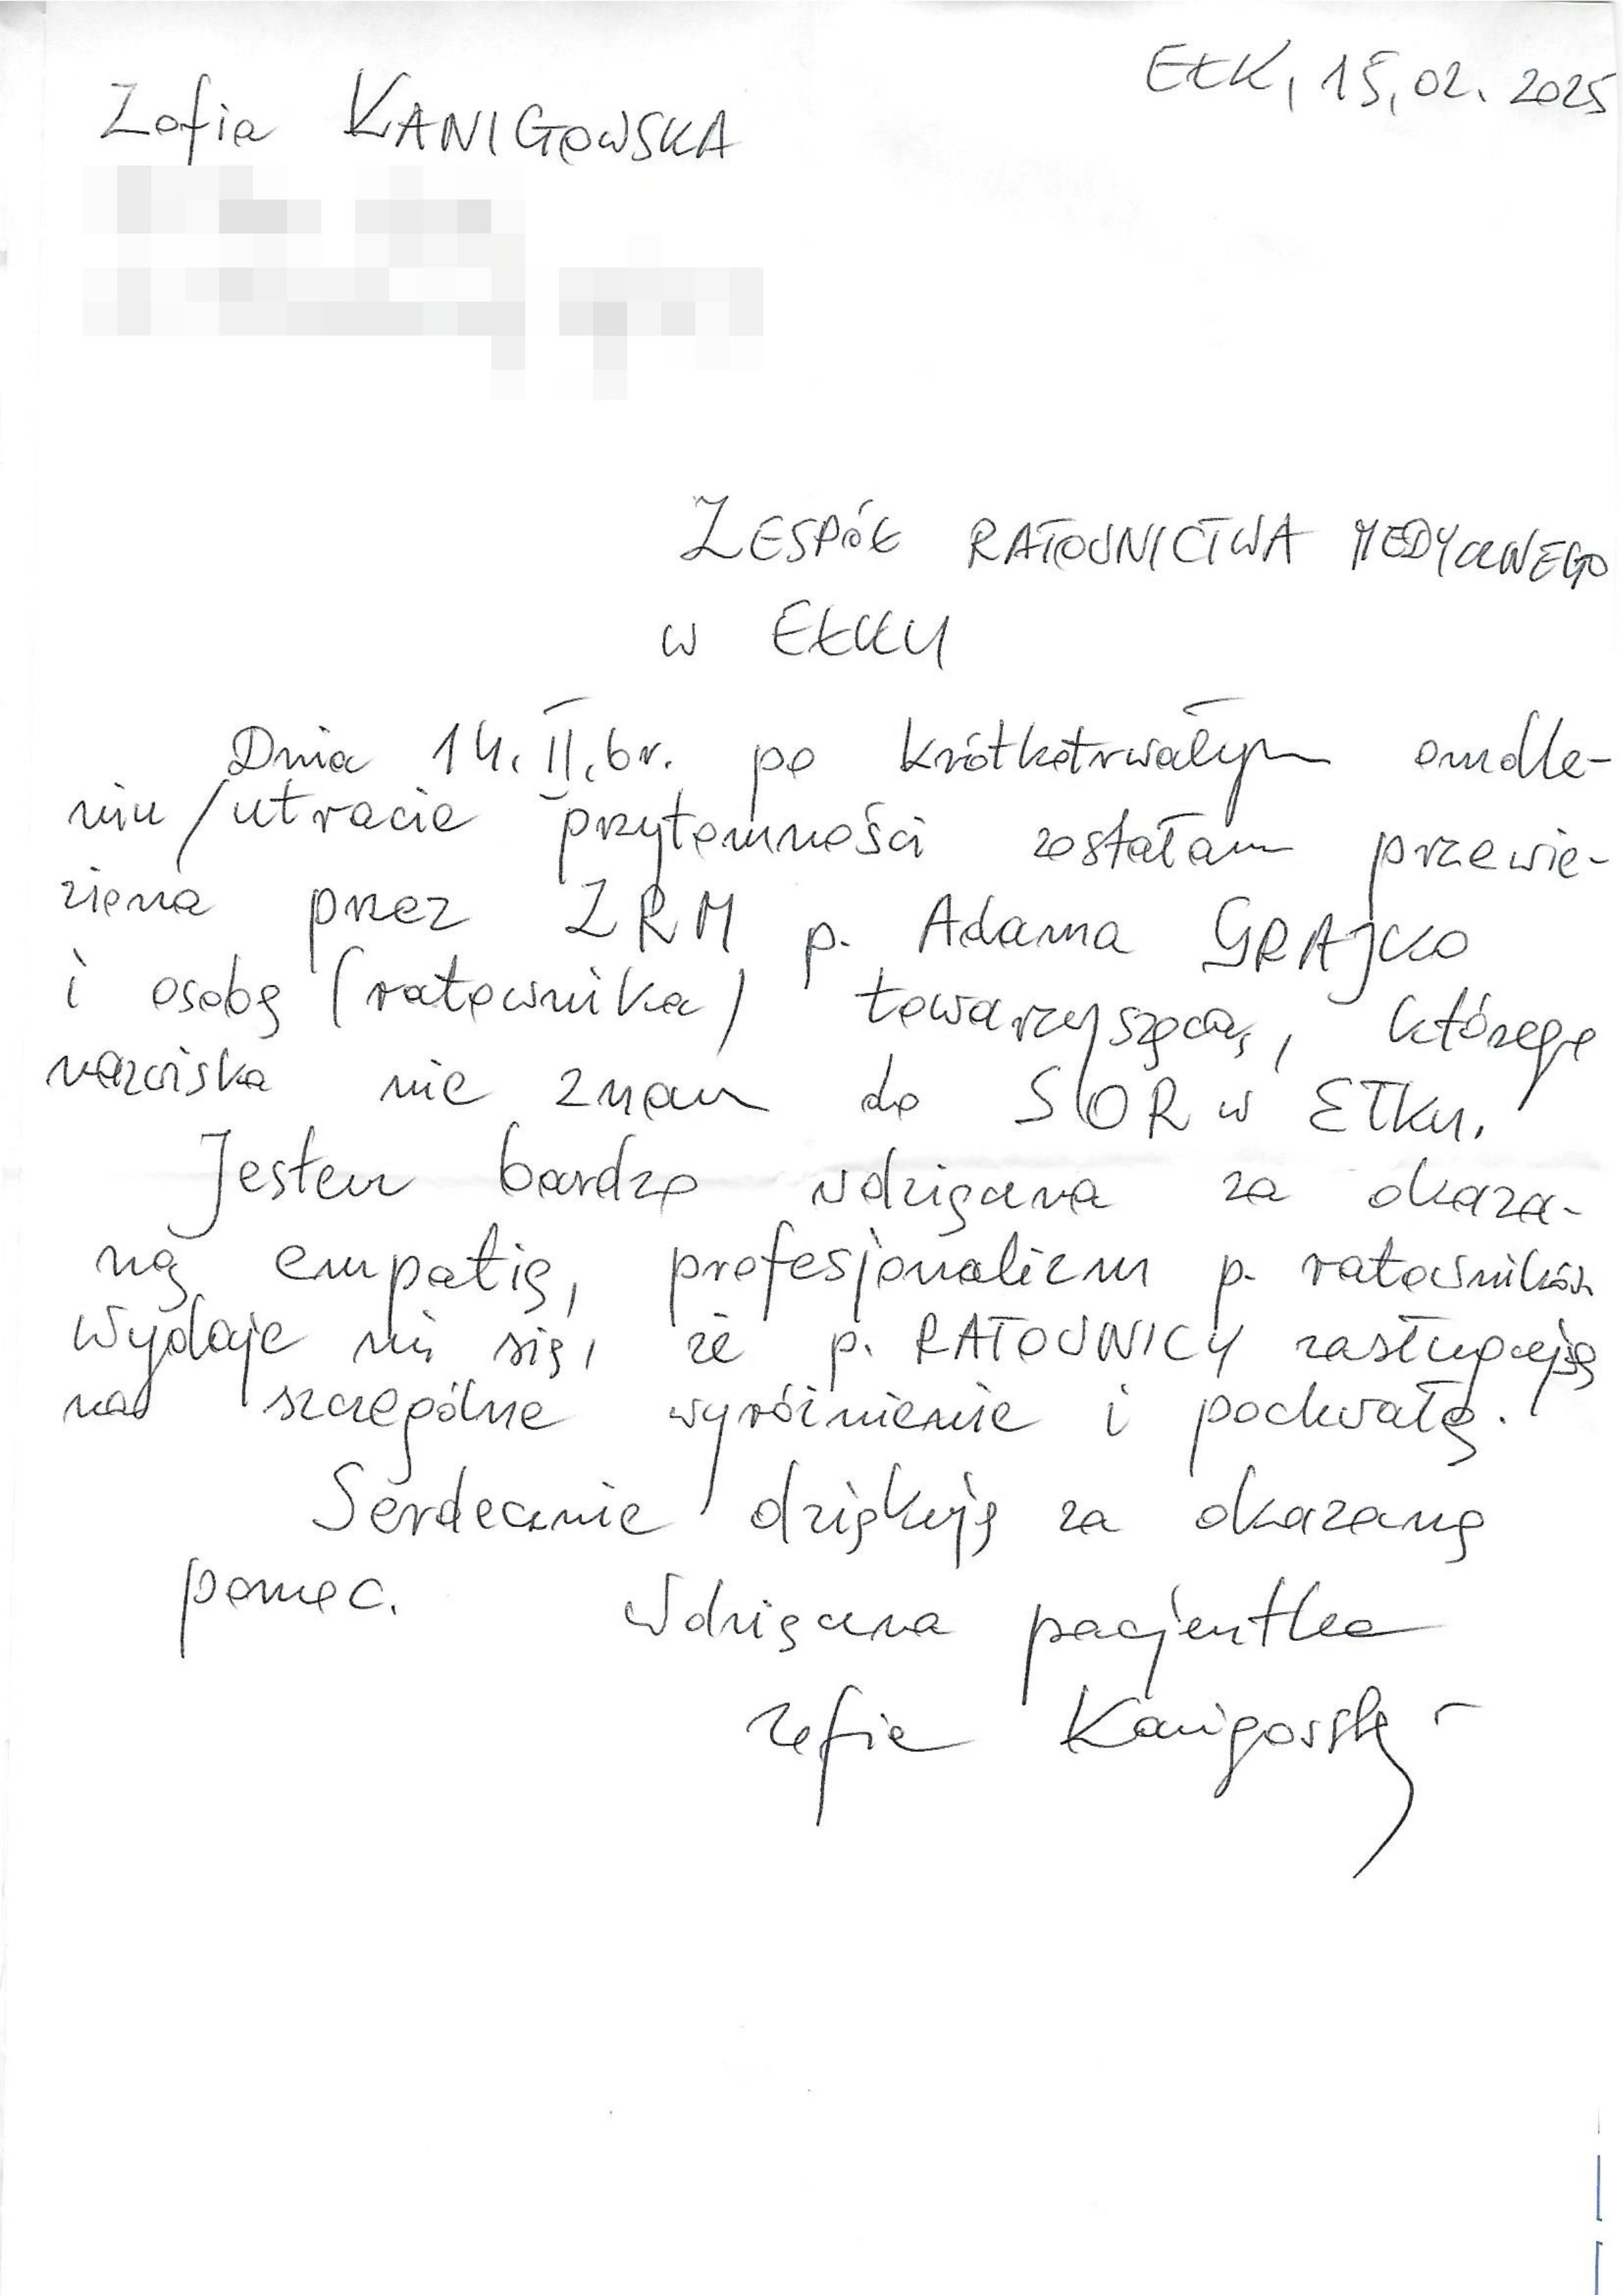 Zofia KANIGOWSKA
EŁK, 15,02. 2025
ZESPÓŁ RATOWNICTWA MEDYCZNEGO
w EŁKU
Dnia 14.II.br. po krótkotrwałym omdle-
niu /utracie przytomności zostałam przewie-
ziona przez ZRM p. Adama GRAJCKO
i osobę (ratownika) towarzyszącą, którego
nazwiska nie znam do SOR w Ełku.
Jestem bardzo wdzięczna za okaza-
ną empatię, profesjonalizm p. ratowników
Wydaje mi się, że p. RATOWNICY zasługują
na szczególne wyróżnienie i pochwałę.
Serdecznie dziękuję za okazaną
pomoc. Wdzięczna pacjentka
Zofia Kanigowska